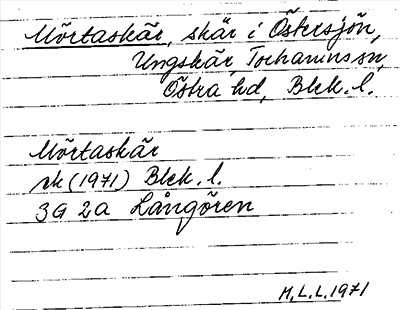 Mörtaskär, skär i Östersjön,
Ungskär, Torhamns sn,
Östra hd, Blek. l.
Mörtaskär
ek (1971) Blek. l.
3G 2a Långören
M.L.L. 1971